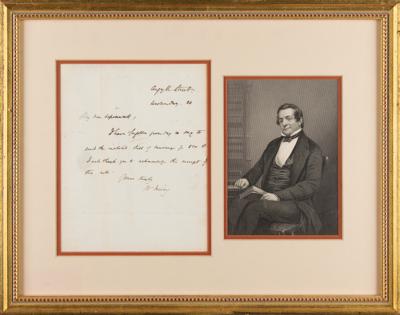 Argyle Street,
Wednesday 24
My dear
I have forgotten from day to day to
send the enclosed bill of
I will thank you to acknowledge the receipt of
this
Yours truly
W. Irving